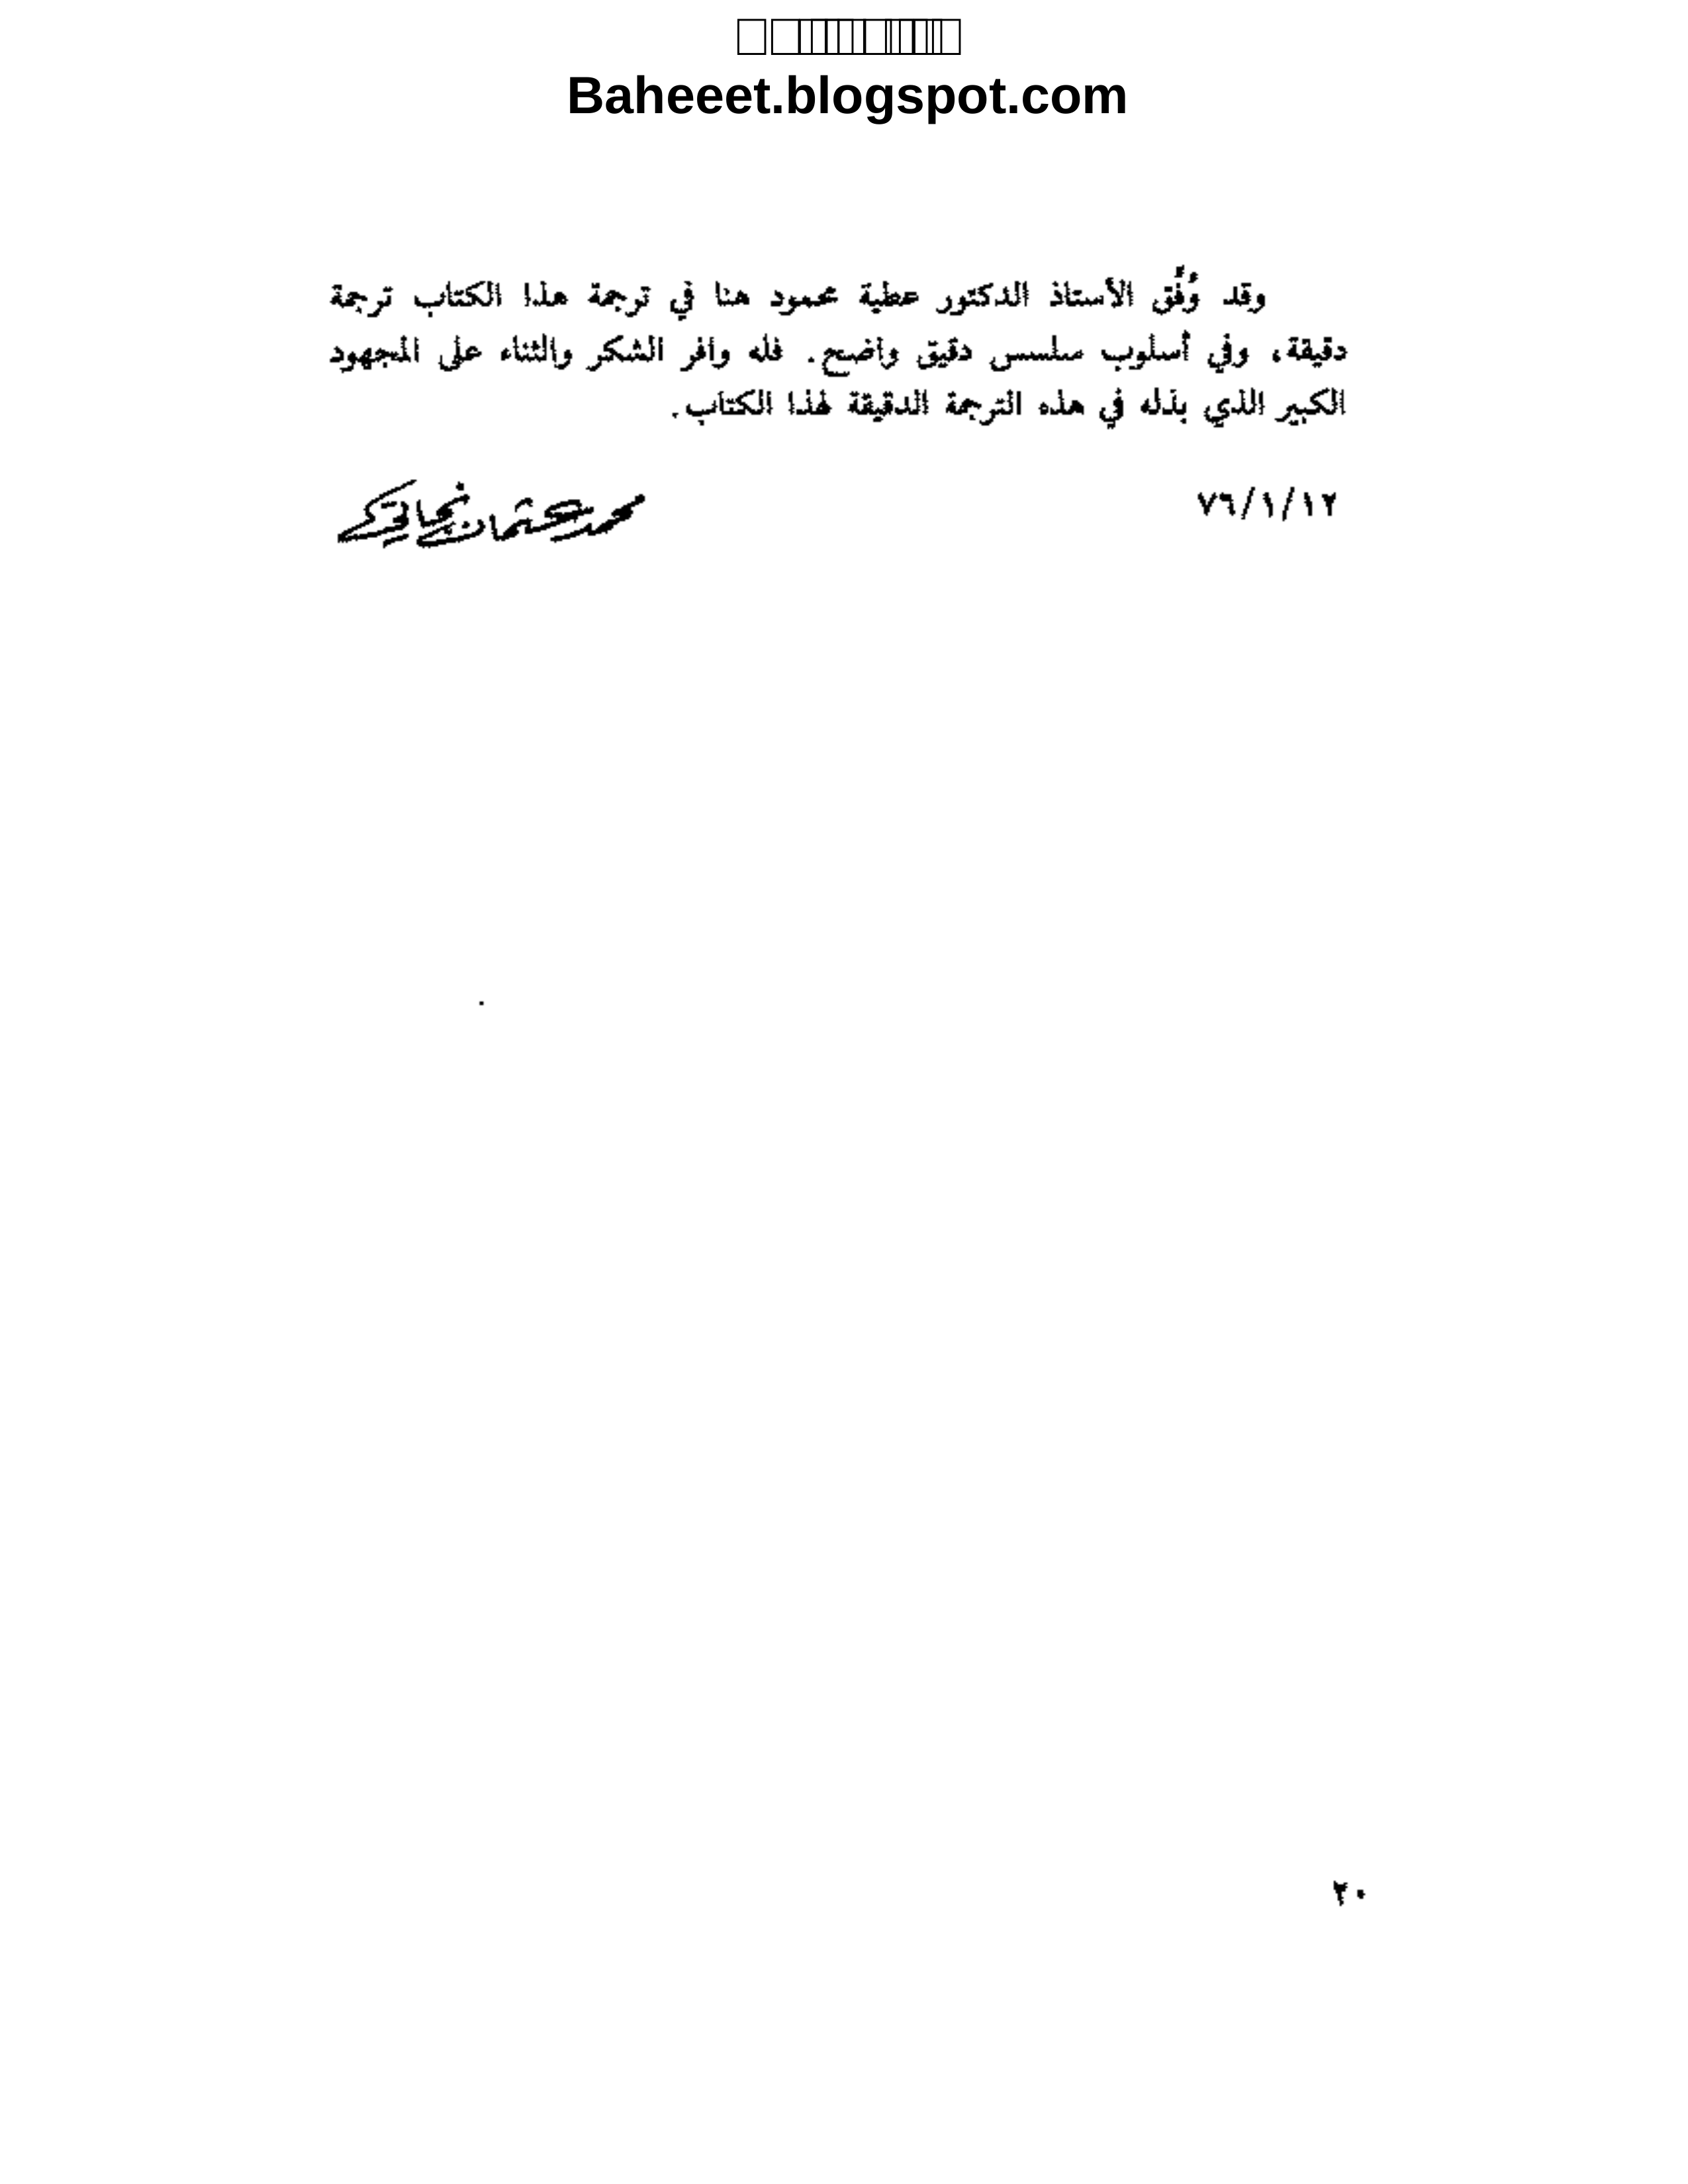 Baheeet.blogspot.com
وقد وُفِّق الأستاذ الدكتور عطية محمود هنا في ترجمة هذا الكتاب ترجمة
دقيقة، وفي أسلوب سلس دقيق واضح. فله وافر الشكر والثناء على المجهود
الكبير الذي بذله في هذه الترجمة الدقيقة لهذا الكتاب.
٧٦/١/١٢
محمد عثمان نجاتي
٢٠